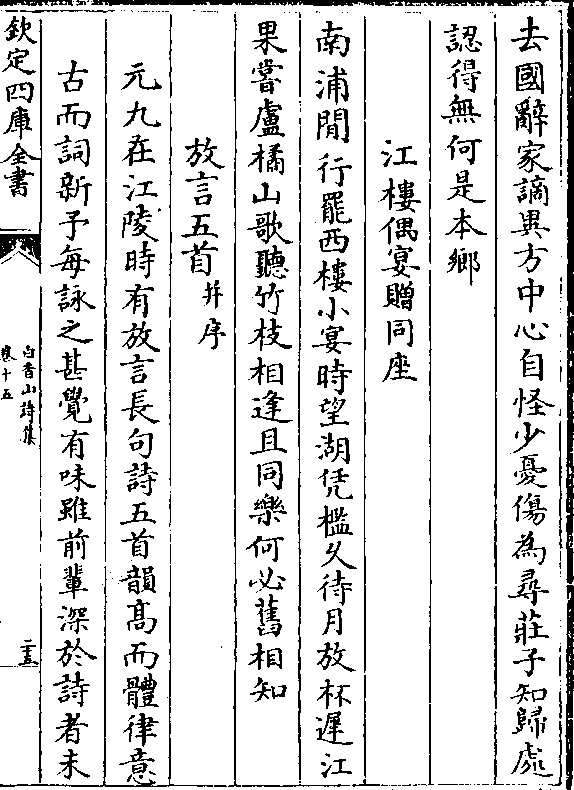 去國辭家謫異方中心自怪少憂傷為尋莊子知歸處
認得無何是本鄉
江樓偶宴贈同座
南浦閒行罷西樓小宴時望湖凭檻久待月放杯遲江
果嘗盧橘山歌聽竹枝相逢且同樂何必舊相知
放言五首并序
元九在江陵時有放言長句詩五首韻髙而體律意
古而詞新予每詠之甚覺有味雖前輩深於詩者未
欽定四庫全書
白香山詩集
卷十五
二十五